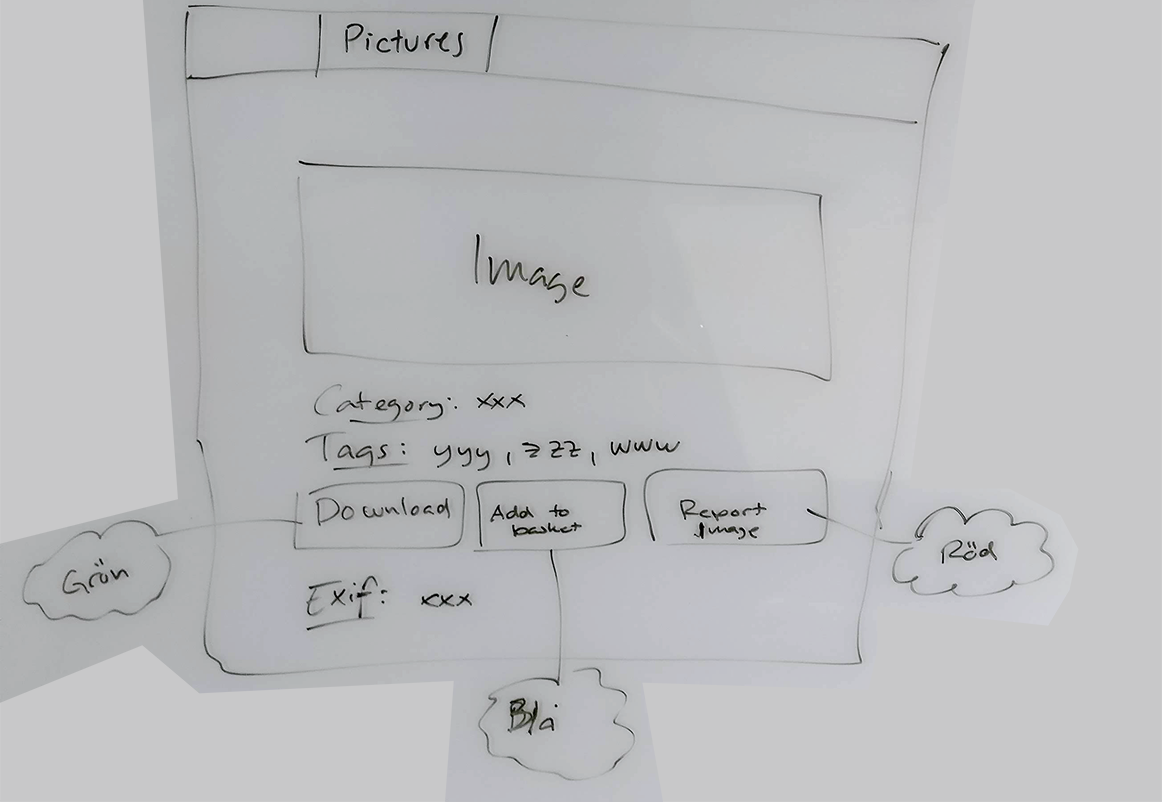 Pictures
Image
Category: xxx
Tags: yyy, zzz, www
Download
Add to
basket
Report
Image
Grön
Röd
Exif: xxx
Blå